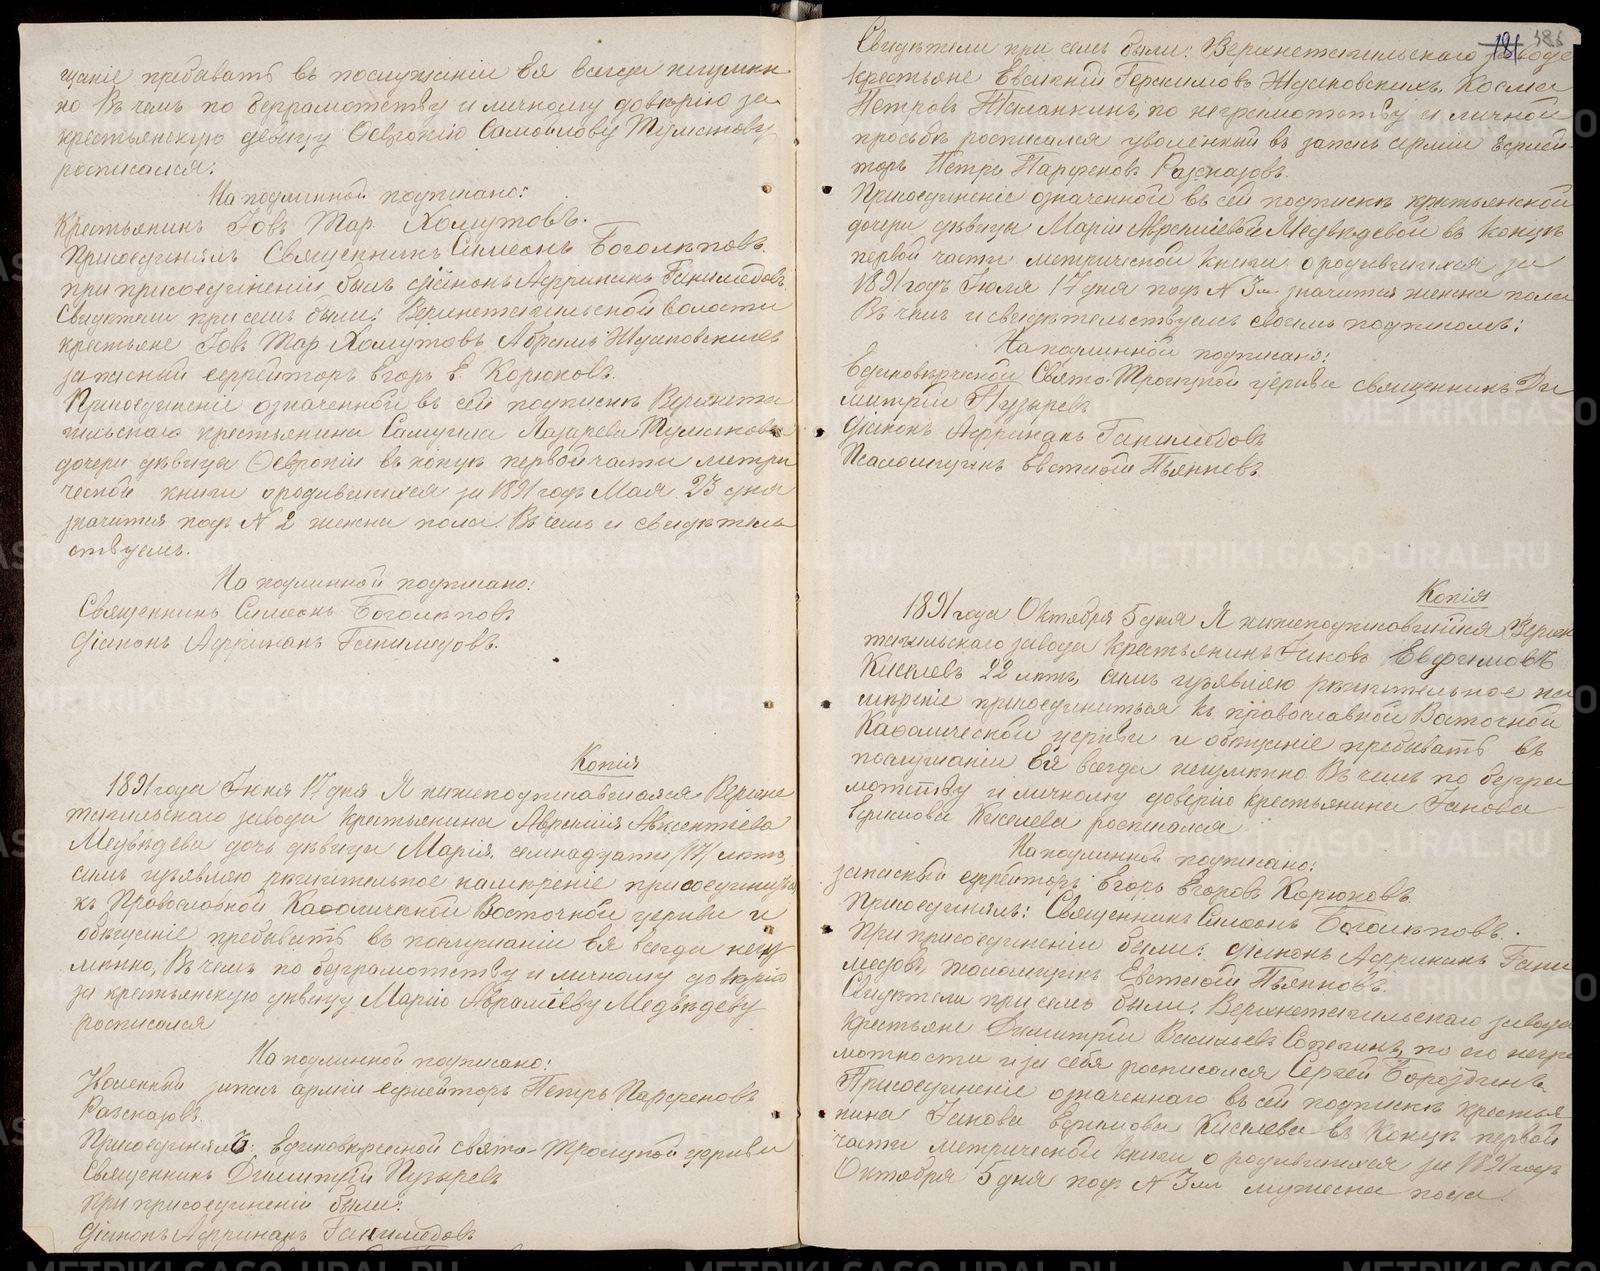 щаніе пребывать въ послушаніи Ея всегда неизмѣн
но Въ чемъ по безграмотству и личному довѣрію за
крестьянскую дѣвицу Ѳевронію Самойлову Туманову
росписался:
На подлинной подписано:
Крестьянинъ Іовъ Мар. Хомутовъ.
Присоединялъ Священникъ Симеонъ Боголѣповъ.
при присоединеніи былъ діаконъ Африканъ Ганимедовъ.
Свидѣтели при семъ были: Верхнетагильской волости
крестьяне Іовъ Мар Хомутовъ Абрамъ Ждановскихъ
запасный ефрейторъ Егоръ Е. Корюковъ.
Присоединеніе означенной въ сей подпискѣ Верхнета
гильскаго крестьянина Самуила Лазарева Туманова
дочери дѣвицы Ѳевроніи въ концѣ первой части метри
ческой книги о родившихся за 1891 годъ Мая 23 дня
значится подъ № 2 женска пола. Въ чемъ и свидѣтель
ствуемъ.
На подлинной подписано:
Священникъ Симеонъ Боголѣповъ
Діаконъ Африканъ Ганимедовъ.
Копія
1891 года Іюля 17 дня Я нижеподписавшаяся Верхне
тагильскаго завода крестьянина Аврамія Авксентьева
Медвѣдева дочь дѣвица Марія, семнадцати /17/ лѣтъ,
симъ изъявляю рѣшительное намѣреніе присоединиться
къ Православной Каѳолической Восточной церкви и
обѣщаніе пребывать въ послушаніи Ея всегда неиз
мѣнно, Въ чемъ по безграмотству и личному довѣрію
за крестьянскую дѣвицу Марію Авраміеву Медвѣдеву
росписался
На подлинной подписано:
Уволенный запасъ арміи ефрейторъ Петръ Парфеновъ
Разсказовъ.
Присоединялъ: Единовѣрческой Свято-Троицкой церкви
Священникъ Димитрій Пузыревъ
при присоединеніи были:
Діаконъ Африканъ Ганимедовъ
181 186
Свидѣтели при семъ были: Верхнетагильскаго завода
крестьяне Евгений Герасимовъ Ждановскихъ, Косма
Петровъ Таланкинъ, по неграмотству и личной
просьбѣ росписался уволенный въ запасъ арміи Ефрей-
торъ Петръ Парфеновъ Разсказовъ.
Присоединеніе означенной въ сей подпискѣ крестьянской
дочери дѣвицы Маріи Авраміевой Медвѣдевой въ концѣ
первой части метрической книги о родившихся за
1891 годъ Іюля 17 дня подъ № 3м значится женска пола
Въ чемъ и свидѣтельствуемъ своимъ подписомъ:
На подлинной подписано:
Единовѣрческой Свято-Троицкой церкви священникъ Ди
митрій Пузыревъ
Діаконъ Африканъ Ганимедовъ
Псаломщикъ Евстафій Пьянковъ.
Копія
1891 года Октября 5 дня Я нижеподписавшійся Верхне
тагильскаго завода Крестьянинъ Іаковъ Евфимовъ
Киселевъ 22 лѣтъ, симъ изъявляю рѣшительное на
мѣреніе присоединиться къ православной Восточной
Каѳолической церкви и обѣщаніе пребывать въ
послушаніи Ея всегда неизмѣнно. Въ чемъ по безгра
мотству и личному довѣрію крестьянина Іакова
Ефимова Киселева росписался
На подлинной подписано:
запасный ефрейторъ Егоръ Егоровъ Корюковъ
Присоединялъ: Священникъ Симеонъ Боголѣповъ.
При присоединеніи были: діаконъ Африканъ Гани
медовъ, псаломщикъ Евстафій Пьянковъ.
Свидѣтели при семъ были: Верхнетагильскаго завода
Крестьяне Димитрій Васильевъ Сопегинъ, по его негра
мотности и за себя росписался Сергей Бороздинъ.
Присоединеніе означеннаго въ сей подпискѣ крестья
нина Іакова Ефимова Киселева въ концѣ первой
части метрической книги о родившихся за 1891 годъ
Октября 5 дня подъ № 3мъ мужеска пола.